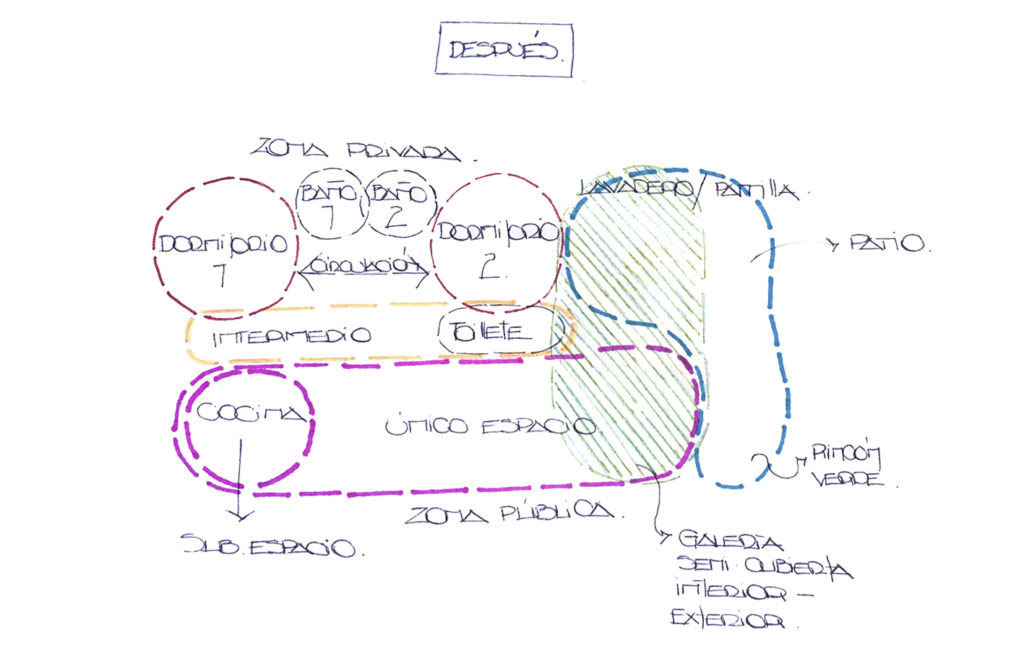 DESPUÉS.
ZONA PRIVADA.
BAÑO 1
BAÑO 2
LAVADERO/PARRILLA.
DORMITORIO 1
DORMITORIO 2.
PATIO.
CIRCULACIÓN
INTERMEDIO
TOILETE
COCINA
ÚNICO ESPACIO.
RINCÓN
VERDE.
ZONA PÚBLICA.
SUB.ESPACIO.
GALERÍA
SEMI CUBIERTA
INTERIOR –
EXTERIOR.